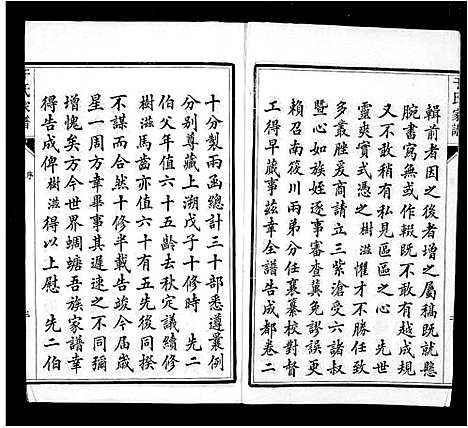 于氏家譜
輯前者因之後者增之屬稿既就懸
腕書寫無或作輟既不敢有越成規
又不敢稍有私見區區之心 先世
靈爽實式憑之樹滋懼才不勝任致
多叢脞爰商請立三紫滄受六諸叔
暨心如族姪逐事審查冀免謬誤更
賴召南筱川兩弟分任襄纂校對督
工得早蕆事茲幸全譜告成都卷二
十分製兩函總計三十部悉遵曩例
分別尊藏上溯戊子十修時 先二
伯父年值六十五齡去秋定議續修
樹滋馬齒亦值六十有五先後同揆
不謀而合然十修半載告竣今屆歲
星一周方幸畢事其遲速之不同彌
增愧矣方今世界蜩螗吾族家譜幸
得告成俾樹滋得以上慰 先二伯
于氏家譜
序
三